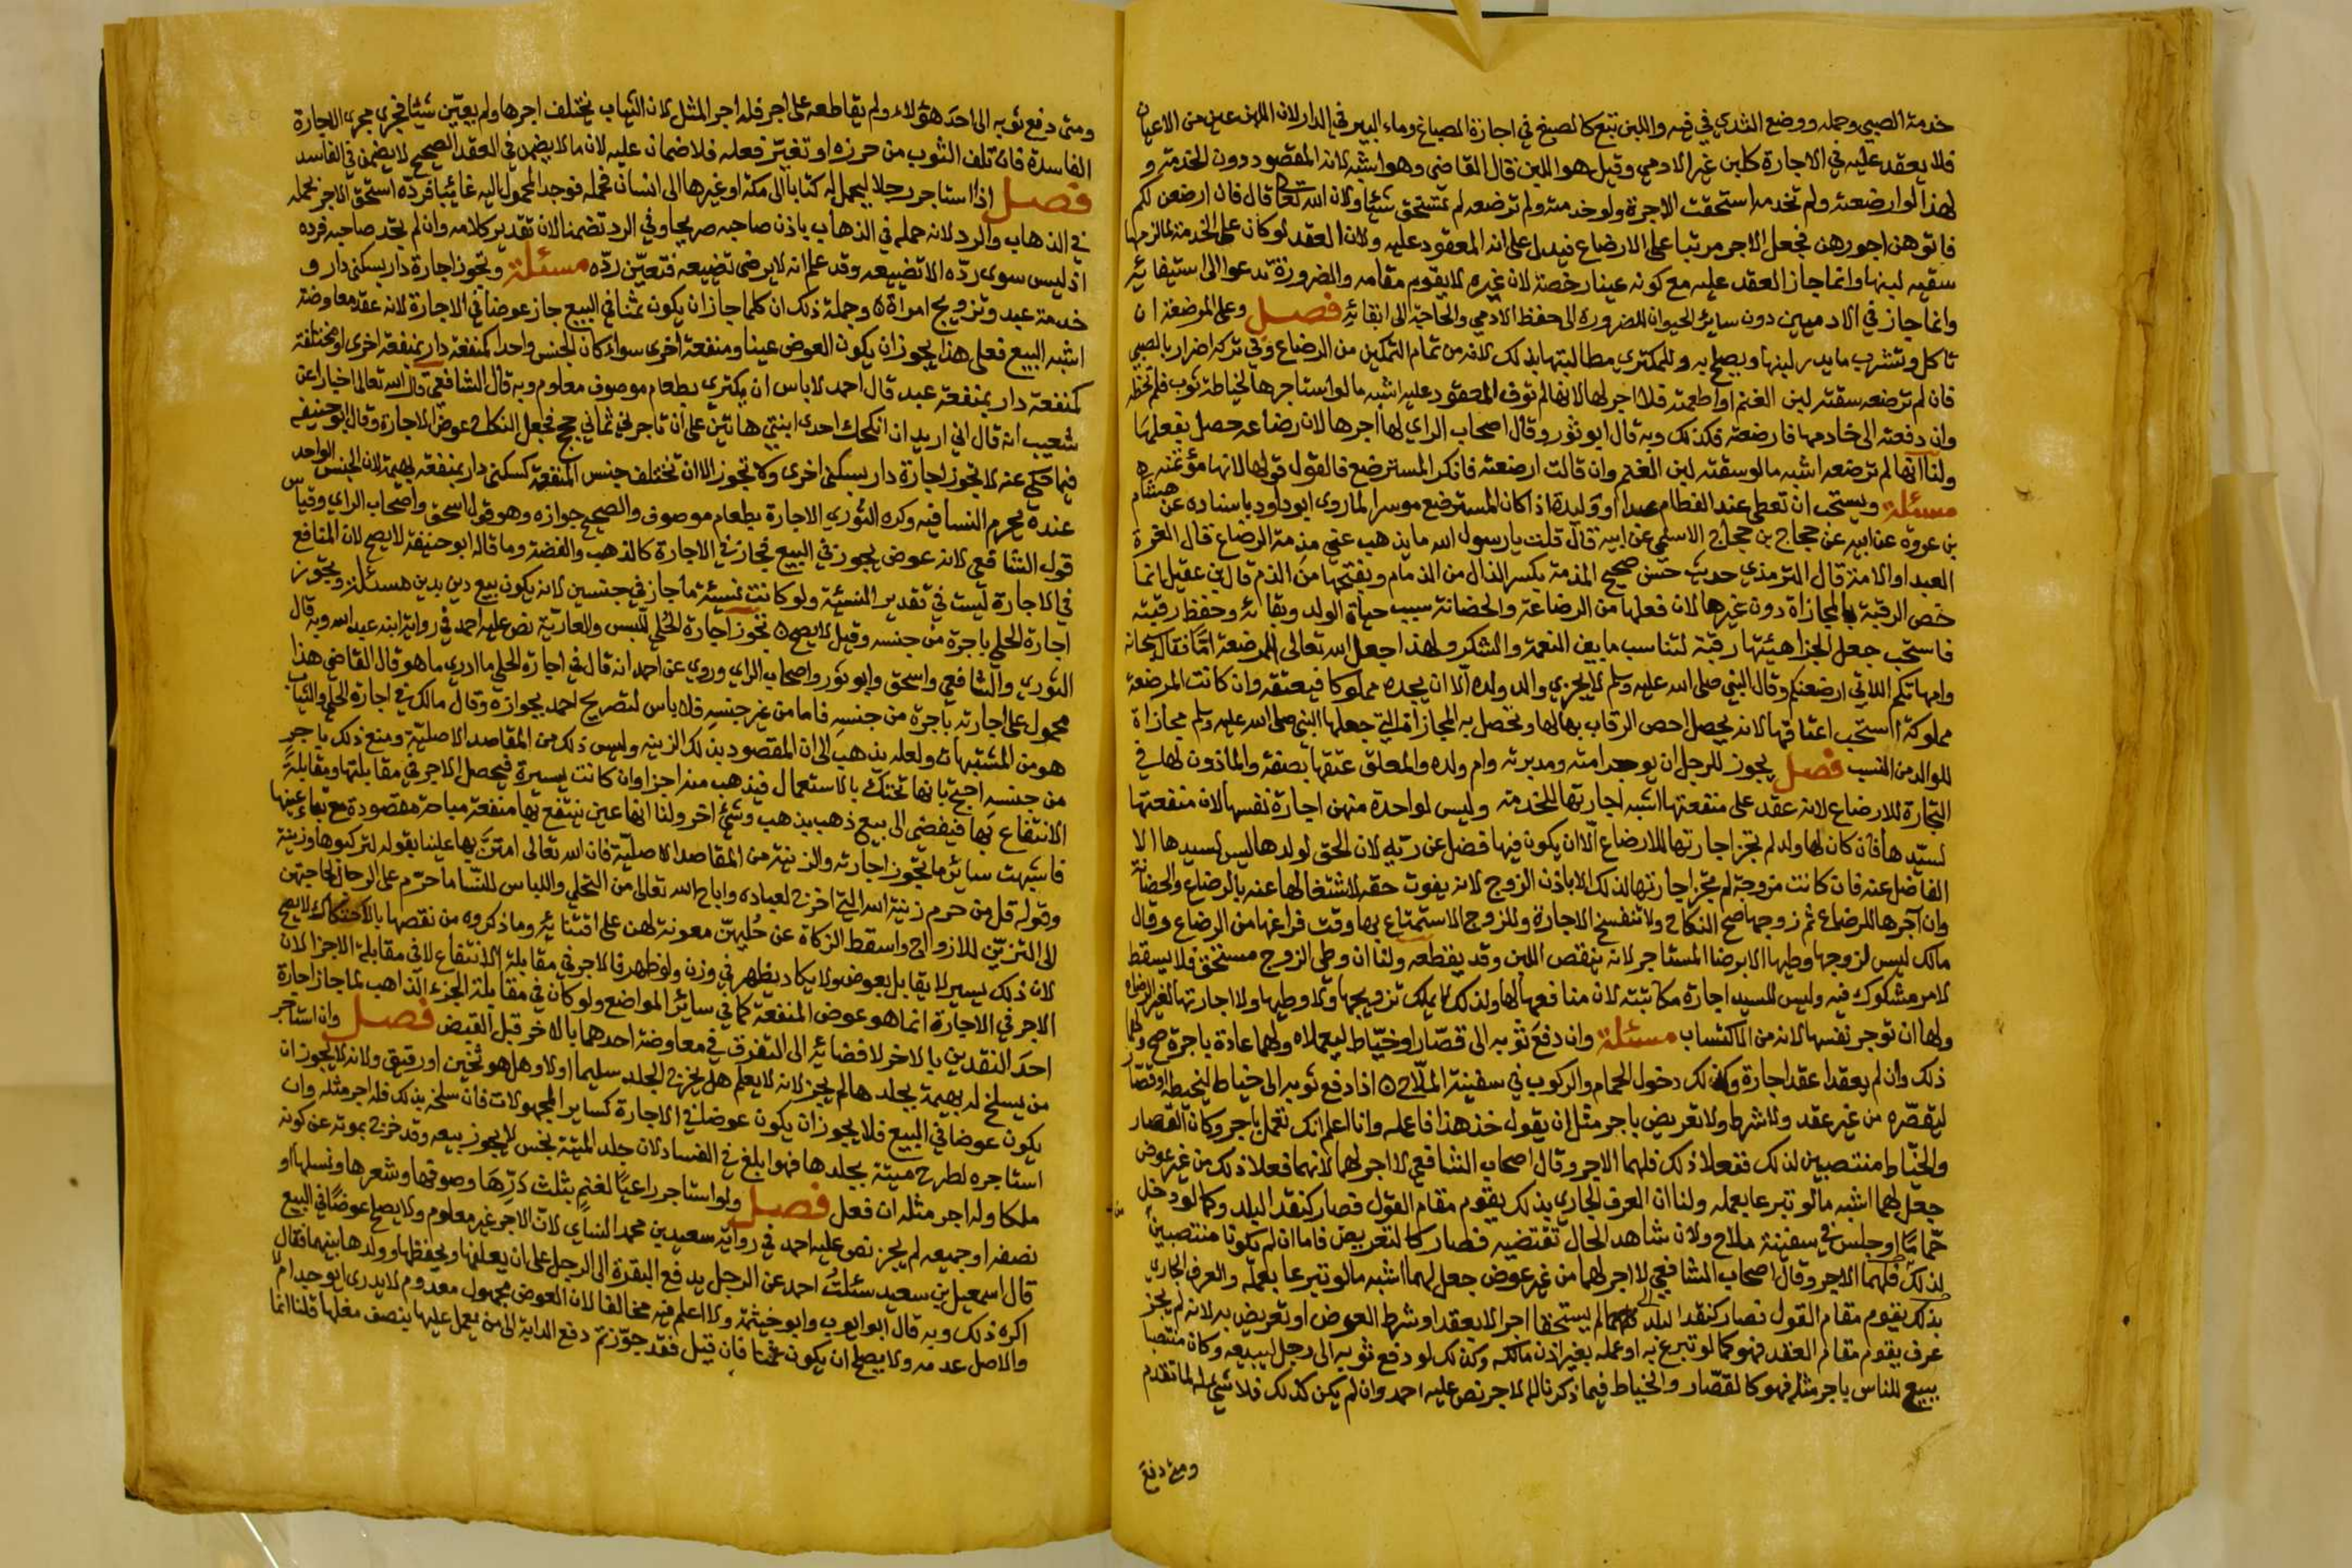 خدمة الصبي وحمله ووضع الثدي في فيه واللبن تبع كالصبغ في اجازة الصباغ وماء البير في الدار لان اللبن عين من الاعيان
فلا يعقد عليه في الاجارة كلبن غير الادمي وقيل هو اللبن قال القاضي وهو اشبه لانه المقصود دون الخدمة و
لهذا لو ارضعته ولم تخدمه استحقت الاجرة ولو خدمته ولم ترضعه لم تستحق شيئا ولان الله تعالى قال فان ارضعن لكم
فاتوهن اجورهن فجعل الاجر مرتبا على الارضاع فيدل على انه المعقود عليه ولان العقد لو كان على الخدمة لما لزمها
سقيه لبنها وانما جاز العقد عليه مع كونه عينا رخصة لان غيره لا يقوم مقامه والضرورة تدعوا الى استيفائه
وانما جاز في الادميين دون ساير الحيوان للضرورة الى حفظ الادمي والحاجة الى ابقائه فصل وعلى المرضعة ان
تاكل وتشرب ما يدر لبنها ويصلح به وللمكتري مطالبتها بذلك لانه من تمام التمكين من الرضاع وفي تركه اضرار بالصبي
فان لم ترضعه سقته لبن الغنم او اطعمته فلا اجر لها لانها لم توف المعقود عليه اشبه ما لو استاجرها لخياطة ثوب فلم تخطه
وان دفعته الى خادمها فارضعته فكذلك وبه قال ابو ثور وقال اصحاب الراي لها اجرها لان رضاعه حصل بفعلها
ولنا انها لم ترضعه اشبه ما لو سقته لبن الغنم وان قالت ارضعته فانكر المسترضع فالقول قولها لانها مؤتمنه
مسئلة ويستحب ان تعطى عند الفطام عبدا او وليدة اذا كان المسترضع موسرا لما روى ابو داود باسناده عن هشام
بن عروة عن ابيه عن حجاج بن حجاج الاسلمي عن ابيه قال قلت يا رسول الله ما يذهب عني مذمة الرضاع قال الغرة
العبد او الامة قال الترمذي حديث حسن صحيح المذمة بكسر الذال من الذمام وبفتحها من الذم قال بن عقيل انما
خص الرقبة بالمجازاة دون غيرها لان فعلها من الرضاعة والحضانة سبب حياة الولد وبقائه وحفظ رقبته
فاستحب جعل الجزا هيئتها رقبة لتناسب ما بين النعمة والشكر ولهذا جعل الله تعالى المرضعة اما فقال سبحانه
وامهاتكم اللاتي ارضعنكم وقال النبي صلى الله عليه وسلم لا يجزي والد ولده الا ان يجده مملوكا فيعتقه وان كانت المرضعة
مملوكة استحب اعتاقها لانه يحصل اخص الرقاب بها لها وتحصل به المجازاة التي جعلها النبي صلى الله عليه وسلم مجازاة
للوالد من النسب فصل يجوز للرجل ان يوجر امته ومدبرته وام ولده والمعلق عتقها بصفة والماذون لها في
التجارة للارضاع لانه عقد على منفعتها اشبه اجارتها للخدمة وليس لواحدة منهن اجارة نفسها لان منفعتها
لسيدها فان كان لها ولد لم تجز اجارتها للارضاع الا ان يكون فيها فضل عن ريه لان الحق لولدها ليس لسيدها الا
الفاضل عنه فان كانت مزوجة لم تجز اجارتها لذلك الا باذن الزوج لانه يفوت حقه لاشتغالها عنه بالرضاع والحضانة
وان اجرها للرضاع ثم زوجها صح النكاح ولا تنفسخ الاجارة وللزوج الاستمتاع بها وقت فراغها من الرضاع وقال
مالك ليس لزوجها وطيها الا برضا المستاجر لانه ينقص اللبن وقد يقطعه ولنا ان وطي الزوج مستحق فلا يسقط
لامر مشكوك فيه وليس للسيد اجارة مكاتبته لان منافعها لها ولذلك لا يملك تزويجها ولا وطيها ولا اجارتها لغير الرضاع
ولها ان توجر نفسها لانه من الاكتساب مسئلة وان دفع ثوبه الى قصار او خياط ليعملاه ولهما عادة باجرة صح
ذلك وان لم يعقدا عقد اجارة وكذلك دخول الحمام والركوب في سفينة الملاح اذا دفع ثوبه الى خياط ليخيطه او قصار
ليقصره من غير عقد ولا شرط ولا تعريض باجر مثل ان يقول خذ هذا فاعمله وانا اعلم انك تعمل باجر وكان القصار
والخياط منتصبين لذلك ففعلا ذلك فلهما الاجر وقال اصحاب الشافعي لا اجر لهما لانهما فعلا ذلك من غير عوض
جعل لهما اشبه ما لو تبرعا بعمله ولنا ان العرف الجاري بذلك يقوم مقام القول فصار كنقد البلد وكما لو دخل
حماما او جلس في سفينة ملاح ولان شاهد الحال تقتضيه فصار كالتعريض فاما ان لم يكونا منتصبين
لذلك فلهما الاجر وقال اصحاب الشافعي لا اجر لهما من غير عوض جعل لهما اشبه ما لو تبرعا بعمله والعرف الجاري
بذلك يقوم مقام القول فصار كنقد البلد لم يستحقا اجرا الا بعقد او شرط العوض او تعريض به لانه لم يجز
عرف يقوم مقام العقد فهو كما لو تبرع به او عمله بغير اذن مالكه وكذلك لو دفع ثوبه الى رجل ليبيعه وكان منتصبا
يبيع للناس باجر مثله فهو كالقصار والخياط فيما ذكرنا له الاجر نص عليه احمد وان لم يكن كذلك فلا شيء له لما تقدم
ومتى دفع
ومتى دفع ثوبه الى احد هؤلاء ولم يقاطعه على اجر فله اجر المثل لان الثياب يختلف اجرها ولم يعين شيئا فجرى مجرى الاجارة
الفاسدة فان تلف الثوب من حرزه او تغير فعله فلا ضمان عليه لان ما لا يضمن في العقد الصحيح لا يضمن في الفاسد
فصل اذا استاجر رجلا ليحمل له كتابا الى مكة او غيرها الى انسان فحمله فوجد المحمول اليه غائبا فرده استحق الاجر بحمله
في الذهاب والرد لانه حمله في الذهاب باذن صاحبه صريحا وفي الرد تضمنا لان تقدير كلامه وان لم تجد صاحبه فرده
اذ ليس سوى رده الا تضييعه وقد علم انه لا يرضى تضييعه فتعين رده مسئلة وتجوز اجارة دار بسكنى دار و
خدمة عبد وتزويج امراة وجملة ذلك ان كلما جاز ان يكون ثمنا في البيع جاز عوضا في الاجارة لانه عقد معاوضة
اشبه البيع فعلى هذا يجوز ان يكون العوض عينا ومنفعة اخرى سواء كان الجنس واحدا كمنفعة دار بمنفعة اخرى او مختلفة
كمنفعة دار بمنفعة عبد قال احمد لا باس ان يكتري بطعام موصوف معلوم وبه قال الشافعي قال الله تعالى اخبارا عن
شعيب انه قال اني اريد ان انكحك احدى ابنتي هاتين على ان تاجرني ثماني حجج فجعل النكاح عوض الاجارة وقال ابو حنيفه
فيما حكي عنه لا تجوز اجارة دار بسكنى اخرى ولا تجوز الا ان تختلف جنس المنفعة كسكنى دار بمنفعة بهيمة لان الجنس الواحد
عنده يحرم النسا فيه وكره الثوري الاجارة بطعام موصوف والصحيح جوازه وهو قول اسحق واصحاب الراي وقياس
قول الشافعي لانه عوض يجوز في البيع فجاز في الاجارة كالذهب والفضة وما قاله ابو حنيفة لا يصح لان المنافع
في الاجارة ليست في تقدير النسيئة ولو كانت نسيئة ما جاز في جنسين لانه يكون بيع دين بدين مسئلة وتجوز
اجارة الحلي باجرة من جنسه وقيل لا يصح تجوز اجارة الحلي للبس والعارية نص عليه احمد في رواية ابنه عبد الله وبه قال
الثوري والشافعي واسحق وابو ثور واصحاب الراي وروي عن احمد انه قال في اجارة الحلي ما ادري ما هو قال القاضي هذا
محمول على اجارته باجرة من جنسه فاما من غير جنسه فلا باس لتصريح احمد بجوازه وقال مالك في اجارة الحلي والثياب
هو من المشتبهات ولعله يذهب الى ان المقصود بذلك الزينة وليس ذلك من المقاصد الاصلية ومنع ذلك باجر
من جنسه احتج بانها تحتك بالاستعمال فيذهب منه اجزا وان كانت يسيرة فيحصل الاجر في مقابلتها ومقابلة
الانتفاع بها فيفضي الى بيع ذهب بذهب وشيء اخر ولنا انها عين ينتفع بها منفعة مباحة مقصودة مع بقاء عينها
فاشبهت سائر ما تجوز اجارته والزينة من المقاصد الاصلية فان الله تعالى امتن بها علينا بقوله لتركبوها وزينة
وقوله قل من حرم زينة الله التي اخرج لعباده واباح الله تعالى من التحلي واللباس للنسا ما حرم على الرجال لحاجتهن
الى التزين للازواج واسقط الزكاة عن حليهن معونة لهن على اقتنائه وما ذكروه من نقصها بالاحتكاك لا يصح
لان ذلك يسير لا يقابل بعوض ولا يكاد يظهر في وزن ولو ظهر فالاجر في مقابلة الانتفاع لا في مقابلة الاجزا لان
الاجر في الاجارة انما هو عوض المنفعة كما في سائر المواضع ولو كان في مقابلة الجزء الذاهب لما جاز اجارة
احد النقدين بالاخر لافضائه الى التفرق في معاوضة احدهما بالاخر قبل القبض فصل وان استاجر
من يسلخ له بهيمة بجلدها لم يجز لانه لا يعلم هل يخرج الجلد سليما او لا وهل هو ثخين او رقيق ولانه لا يجوز ان
يكون عوضا في البيع فلا يجوز ان يكون عوضا في الاجارة كساير المجهولات فان سلخه بذلك فله اجر مثله وان
استاجره لطرح ميتة بجلدها فهو ابلغ في الفساد لان جلد الميتة نجس لا يجوز بيعه وقد خرج بموته عن كونه
ملكا وله اجر مثله ان فعل فصل ولو استاجر راعيا لغنم بثلث درها وصوفها وشعرها ونسلها او
نصفه او جميعه لم يجز نص عليه احمد في رواية سعيد بن محمد النساي لان الاجر غير معلوم ولا يصلح عوضا في البيع
قال اسمعيل بن سعيد سئلت احمد عن الرجل يدفع البقرة الى الرجل على ان يعلفها ويحفظها وولدها بينهما فقال
اكره ذلك وبه قال ابو ايوب وابو خيثمة ولا اعلم فيه مخالفا لان العوض مجهول معدوم لا يدري ايوجد ام لا
والاصل عدمه ولا يصلح ان يكون ثمنا فان قيل فقد جوزتم دفع الدابة الى من يعمل عليها بنصف مغلها قلنا انما